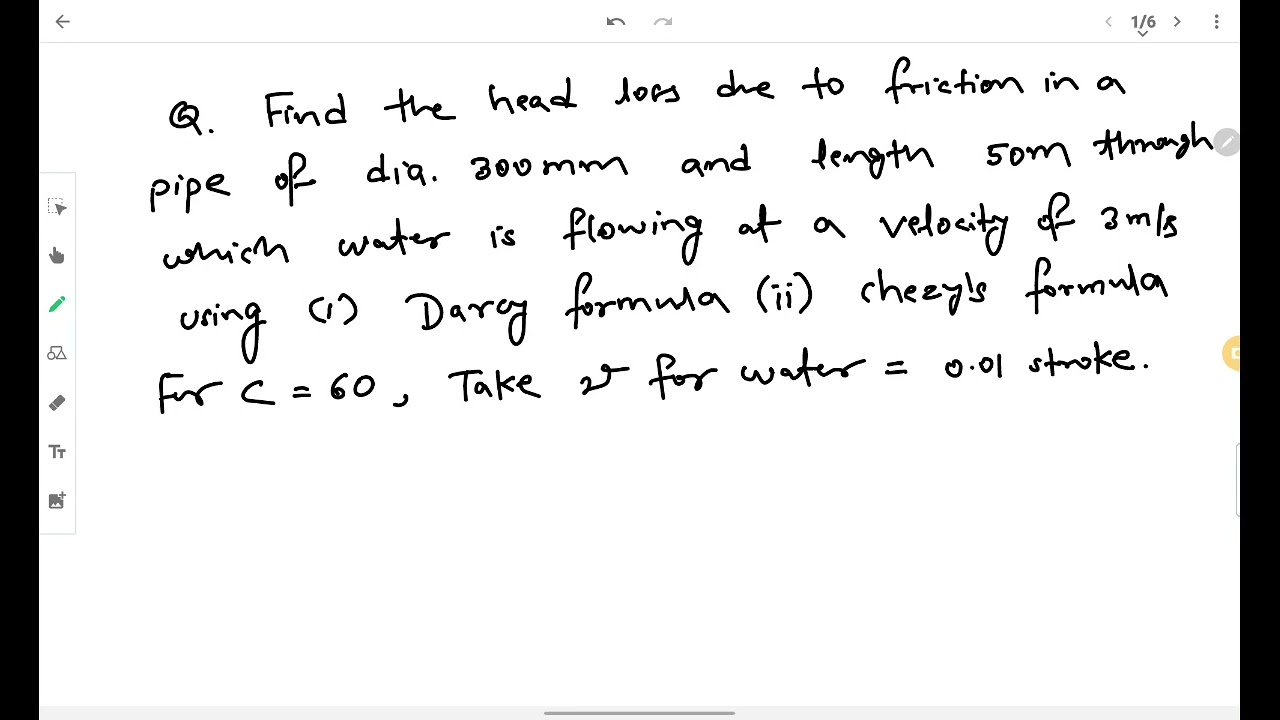 1/6
Q. Find the head loss due to friction in a
pipe of dia. 300mm and length 50m through
which water is flowing at a velocity of 3m/s
using (i) Darcy formula (ii) chezy's formula
For C = 60, Take ν for water = 0.01 stroke.
Tт